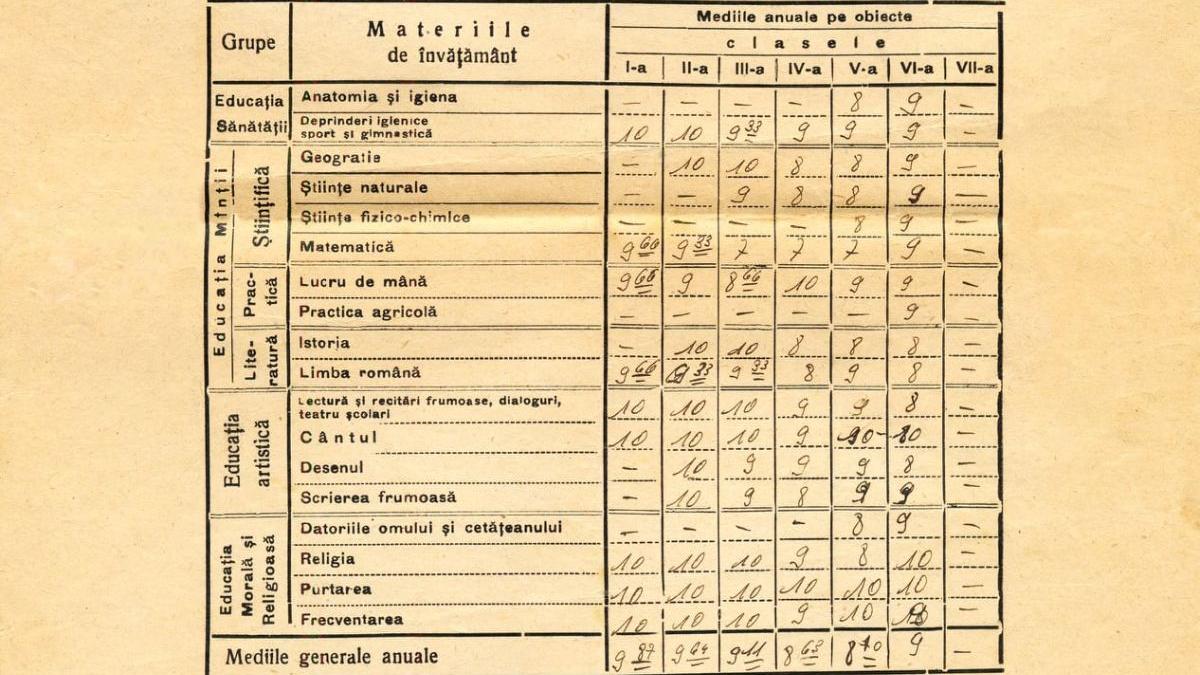 Grupe Materiile de învățământ Mediile anuale pe obiecte
clasele
I-a II-a III-a IV-a V-a VI-a VII-a
Educația Sănătății
Anatomia și igiena — — — — 8 9 —
Deprinderi igienice sport și gimnastică 10 10 9 33 9 9 9 —
Educația Minții
Științifică
Geografie — 10 10 8 8 9 —
Științe naturale — — 9 8 8 9 —
Științe fizico-chimice — — — — 8 9 —
Matematică 9 66 9 33 7 7 7 9 —
Practică
Lucru de mână 9 66 9 8 66 10 9 9 —
Practica agricolă — — — — — 9 —
Literatură
Istoria — 10 10 8 8 8 —
Limba română 9 66 9 33 9 33 8 9 8 —
Educația artistică
Lectură și recitări frumoase, dialoguri, teatru școlari 10 10 10 9 9 8 —
Cântul 10 10 10 9 10 10 —
Desenul — 10 9 9 9 8 —
Scrierea frumoasă — 10 9 8 9 9 —
Educația Morală și Religioasă
Datoriile omului și cetățeanului — — — — 8 9 —
Religia 10 10 10 9 8 10 —
Purtarea 10 10 10 10 10 10 —
Frecventarea 10 10 10 9 10 —
Mediile generale anuale 9 87 9 64 9 11 8 63 8 70 9 —